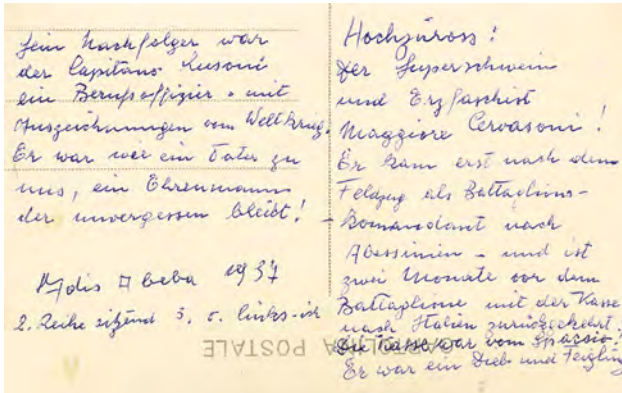 Sein Nachfolger war
der Capitano Lusoni
ein Berufsoffizier - mit
Auszeichnungen vom Weltkrieg.
Er war wie ein Vater zu
uns, ein Ehrenmann
der unvergessen bleibt!
Adis Abeba 1937
2. Reihe sitzend 3. v. links - ich
Der Superschwein
und Erzfaschist
Maggiore Cervasoni!
Er kam erst nach dem
Feldzug als Battaglions-
Komandant nach
Abessinien - und ist
zwei Monate vor dem
Battaglione mit der Kasse
nach Italien zurückgekehrt!
Die Kasse war vom Spaccio!
Er war ein Dieb und Feigling
CARTOLINA POSTALE